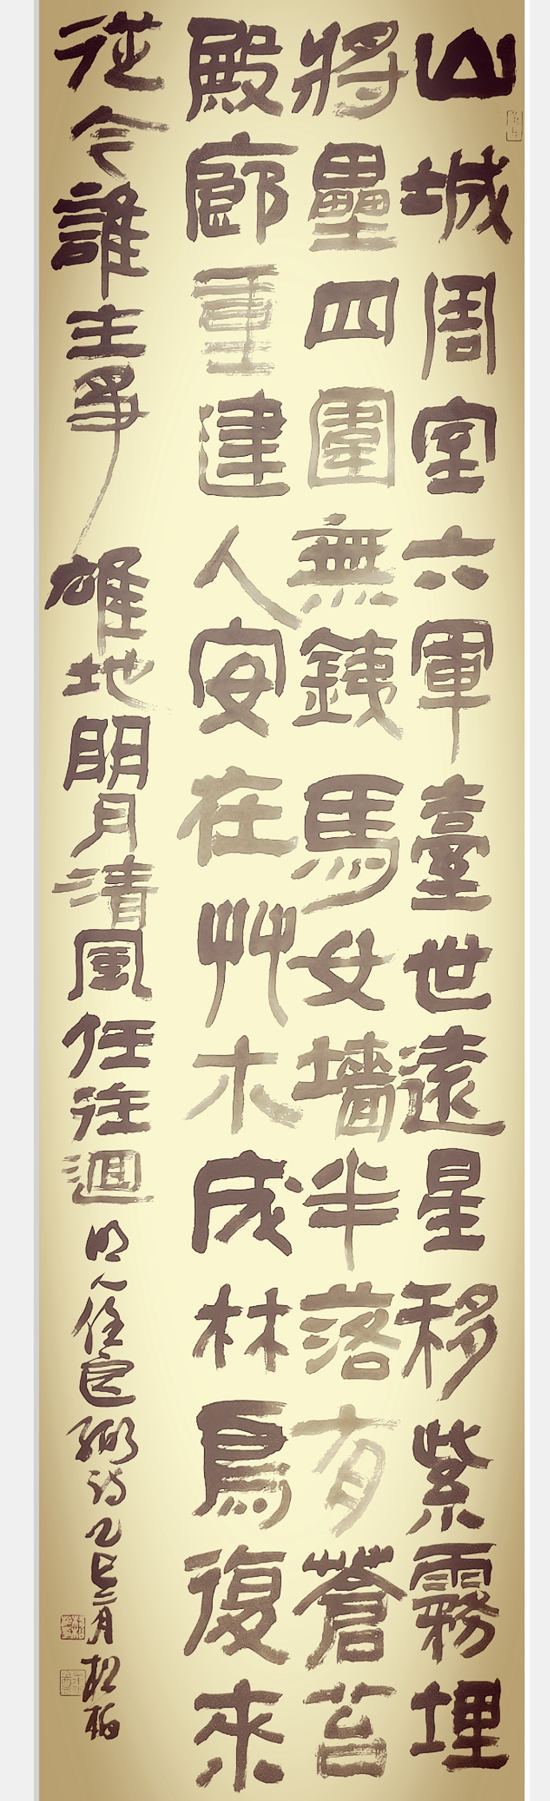 山城周室六軍臺世遠星移紫霧埋
將壘四圍無鐵馬女墻半落有蒼苔
殿廊重建人安在艸木成林鳥復來
從今誰主爭雄地明月清風任往迴
明人任良弼詩乙巳二月松柏